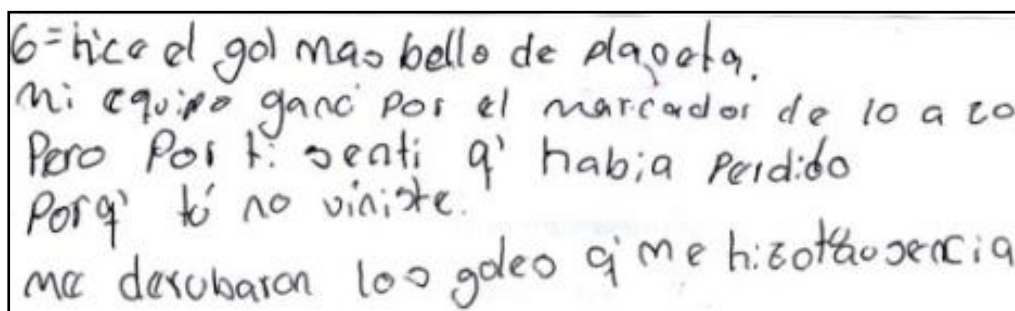 6=hice el gol mas bello de planeta.
mi equipo ganó por el marcador de 10 a 20
Pero Por ti senti q' habia Perdido
Porq' tú no viniste.
me derubaron los goles q' me hizo tu ausencia